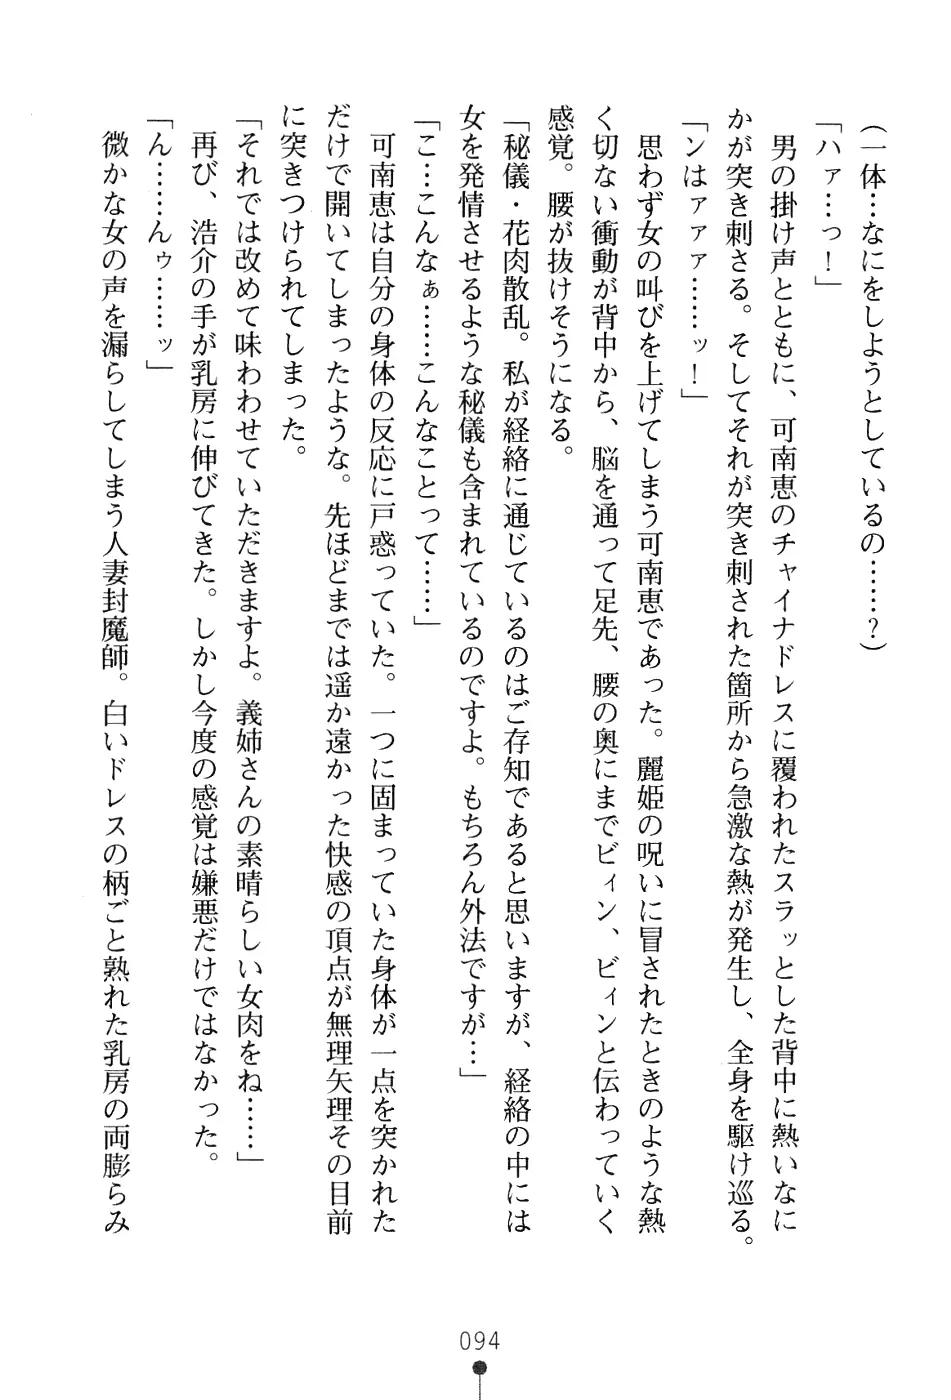 (一体…なにをしようとしているの……？)
「ハァ…っ！」
　男の掛け声とともに、可南恵のチャイナドレスに覆われたスラッとした背中に熱いなに
かが突き刺さる。そしてそれが突き刺された箇所から急激な熱が発生し、全身を駆け巡る。
「ンはァァァ……ッ！」
　思わず女の叫びを上げてしまう可南恵であった。麗姫の呪いに冒されたときのような熱
く切ない衝動が背中から、脳を通って足先、腰の奥にまでビィン、ビィンと伝わっていく
感覚。腰が抜けそうになる。
「秘儀・花肉散乱。私が経絡に通じているのはご存知であると思いますが、経絡の中には
女を発情させるような秘儀も含まれているのですよ。もちろん外法ですが…」
「こ…こんなぁ……こんなことって……」
　可南恵は自分の身体の反応に戸惑っていた。一つに固まっていた身体が一点を突かれた
だけで開いてしまったような。先ほどまでは遥か遠かった快感の頂点が無理矢理その目前
に突きつけられてしまった。
「それでは改めて味わわせていただきますよ。義姉さんの素晴らしい女肉をね……」
　再び、浩介の手が乳房に伸びてきた。しかし今度の感覚は嫌悪だけではなかった。
「ん……んゥ……ッ」
　微かな女の声を漏らしてしまう人妻封魔師。白いドレスの柄ごと熟れた乳房の両膨らみ
094